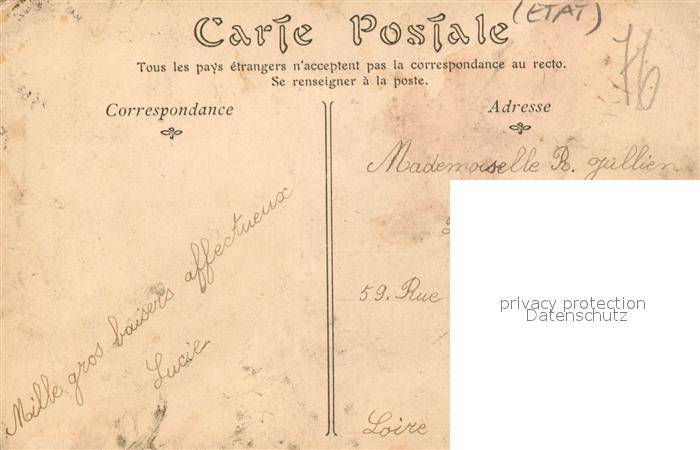 Carte Postale
(ETAT)
76
Tous les pays étrangers n'acceptent pas la correspondance au recto.
Se renseigner à la poste.
Correspondance
Adresse
Mille gros baisers affectueux
Lucie
Mademoiselle R. Jullien
59. Rue
Loire
privacy protection
Datenschutz